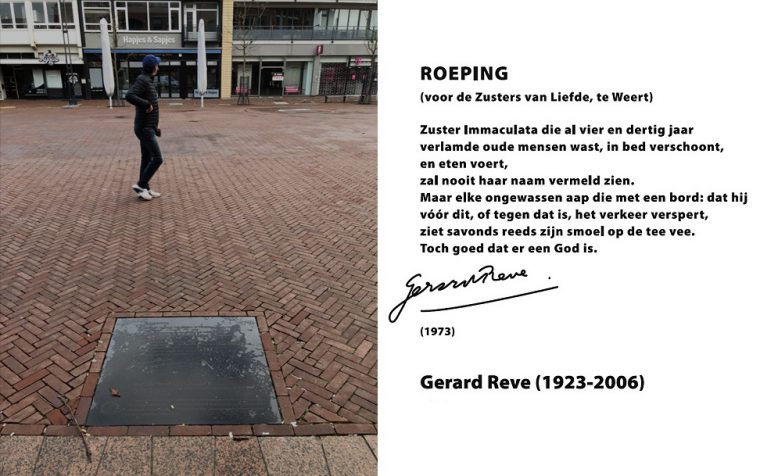 Hapjes & Sapjes
ROEPING
(voor de Zusters van Liefde, te Weert)
Zuster Immaculata die al vier en dertig jaar
verlamde oude mensen wast, in bed verschoont,
en eten voert,
zal nooit haar naam vermeld zien.
Maar elke ongewassen aap die met een bord: dat hij
vóór dit, of tegen dat is, het verkeer verspert,
ziet savonds reeds zijn smoel op de tee vee.
Toch goed dat er een God is.
Gerard Reve.
(1973)
Gerard Reve (1923-2006)